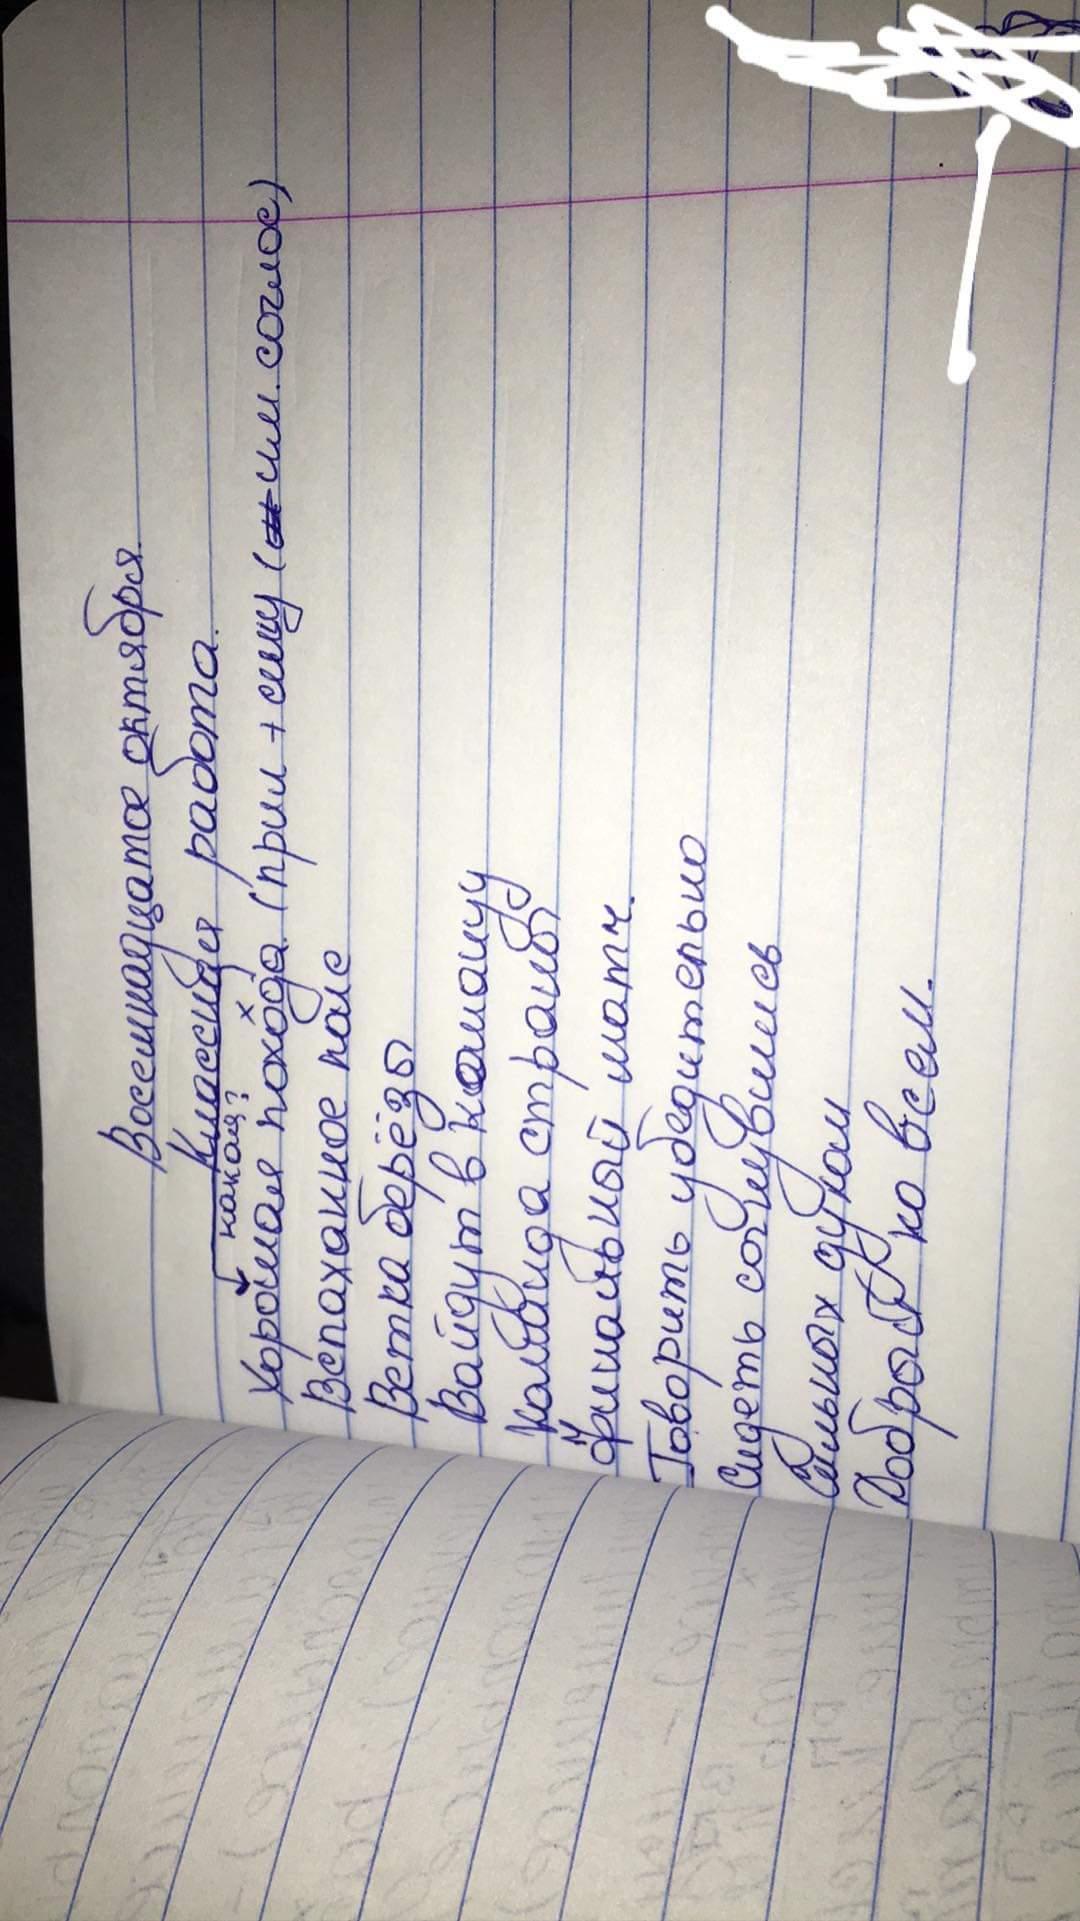 Восемнадцатое октября.
Классная работа.
какая?
х
Хорошая похода (прил + сущ (им. соглос)
Вспаханное поле
Ветка берёзы
Войдут в комнату
Команда страны
Финальный матч.
Говорить убедительно
Сидеть согнувшись
Сильных духом
Добрый ко всем.